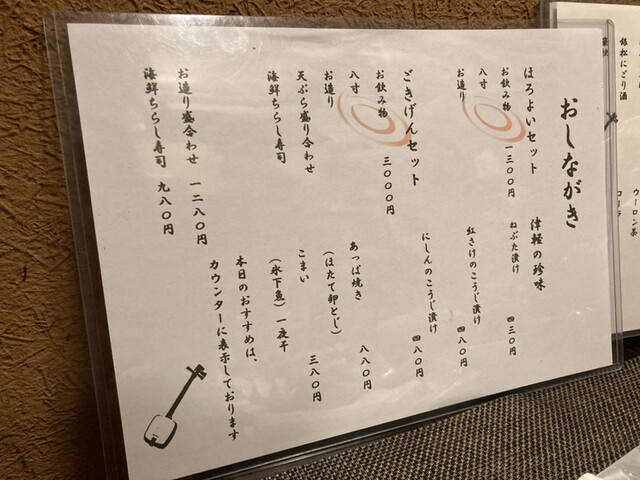 おしながき
ほろよいセット
お飲み物
八寸
お造り
一三〇〇円
ごきげんセット
お飲み物
八寸
お造り
天ぷら盛り合わせ
海鮮ちらし寿司
三〇〇〇円
お造り盛合わせ 一二八〇円
海鮮ちらし寿司 九八〇円
津軽の珍味
ねぶた漬け 四三〇円
紅さけのこうじ漬け 四八〇円
にしんのこうじ漬け 四八〇円
あっぱ焼き
(ほたて卵とじ) 八八〇円
こまい
(氷下魚)一夜干 三八〇円
本日のおすすめは、
カウンターに表示しております
銀松にごり酒
ウーロン茶
コーラ